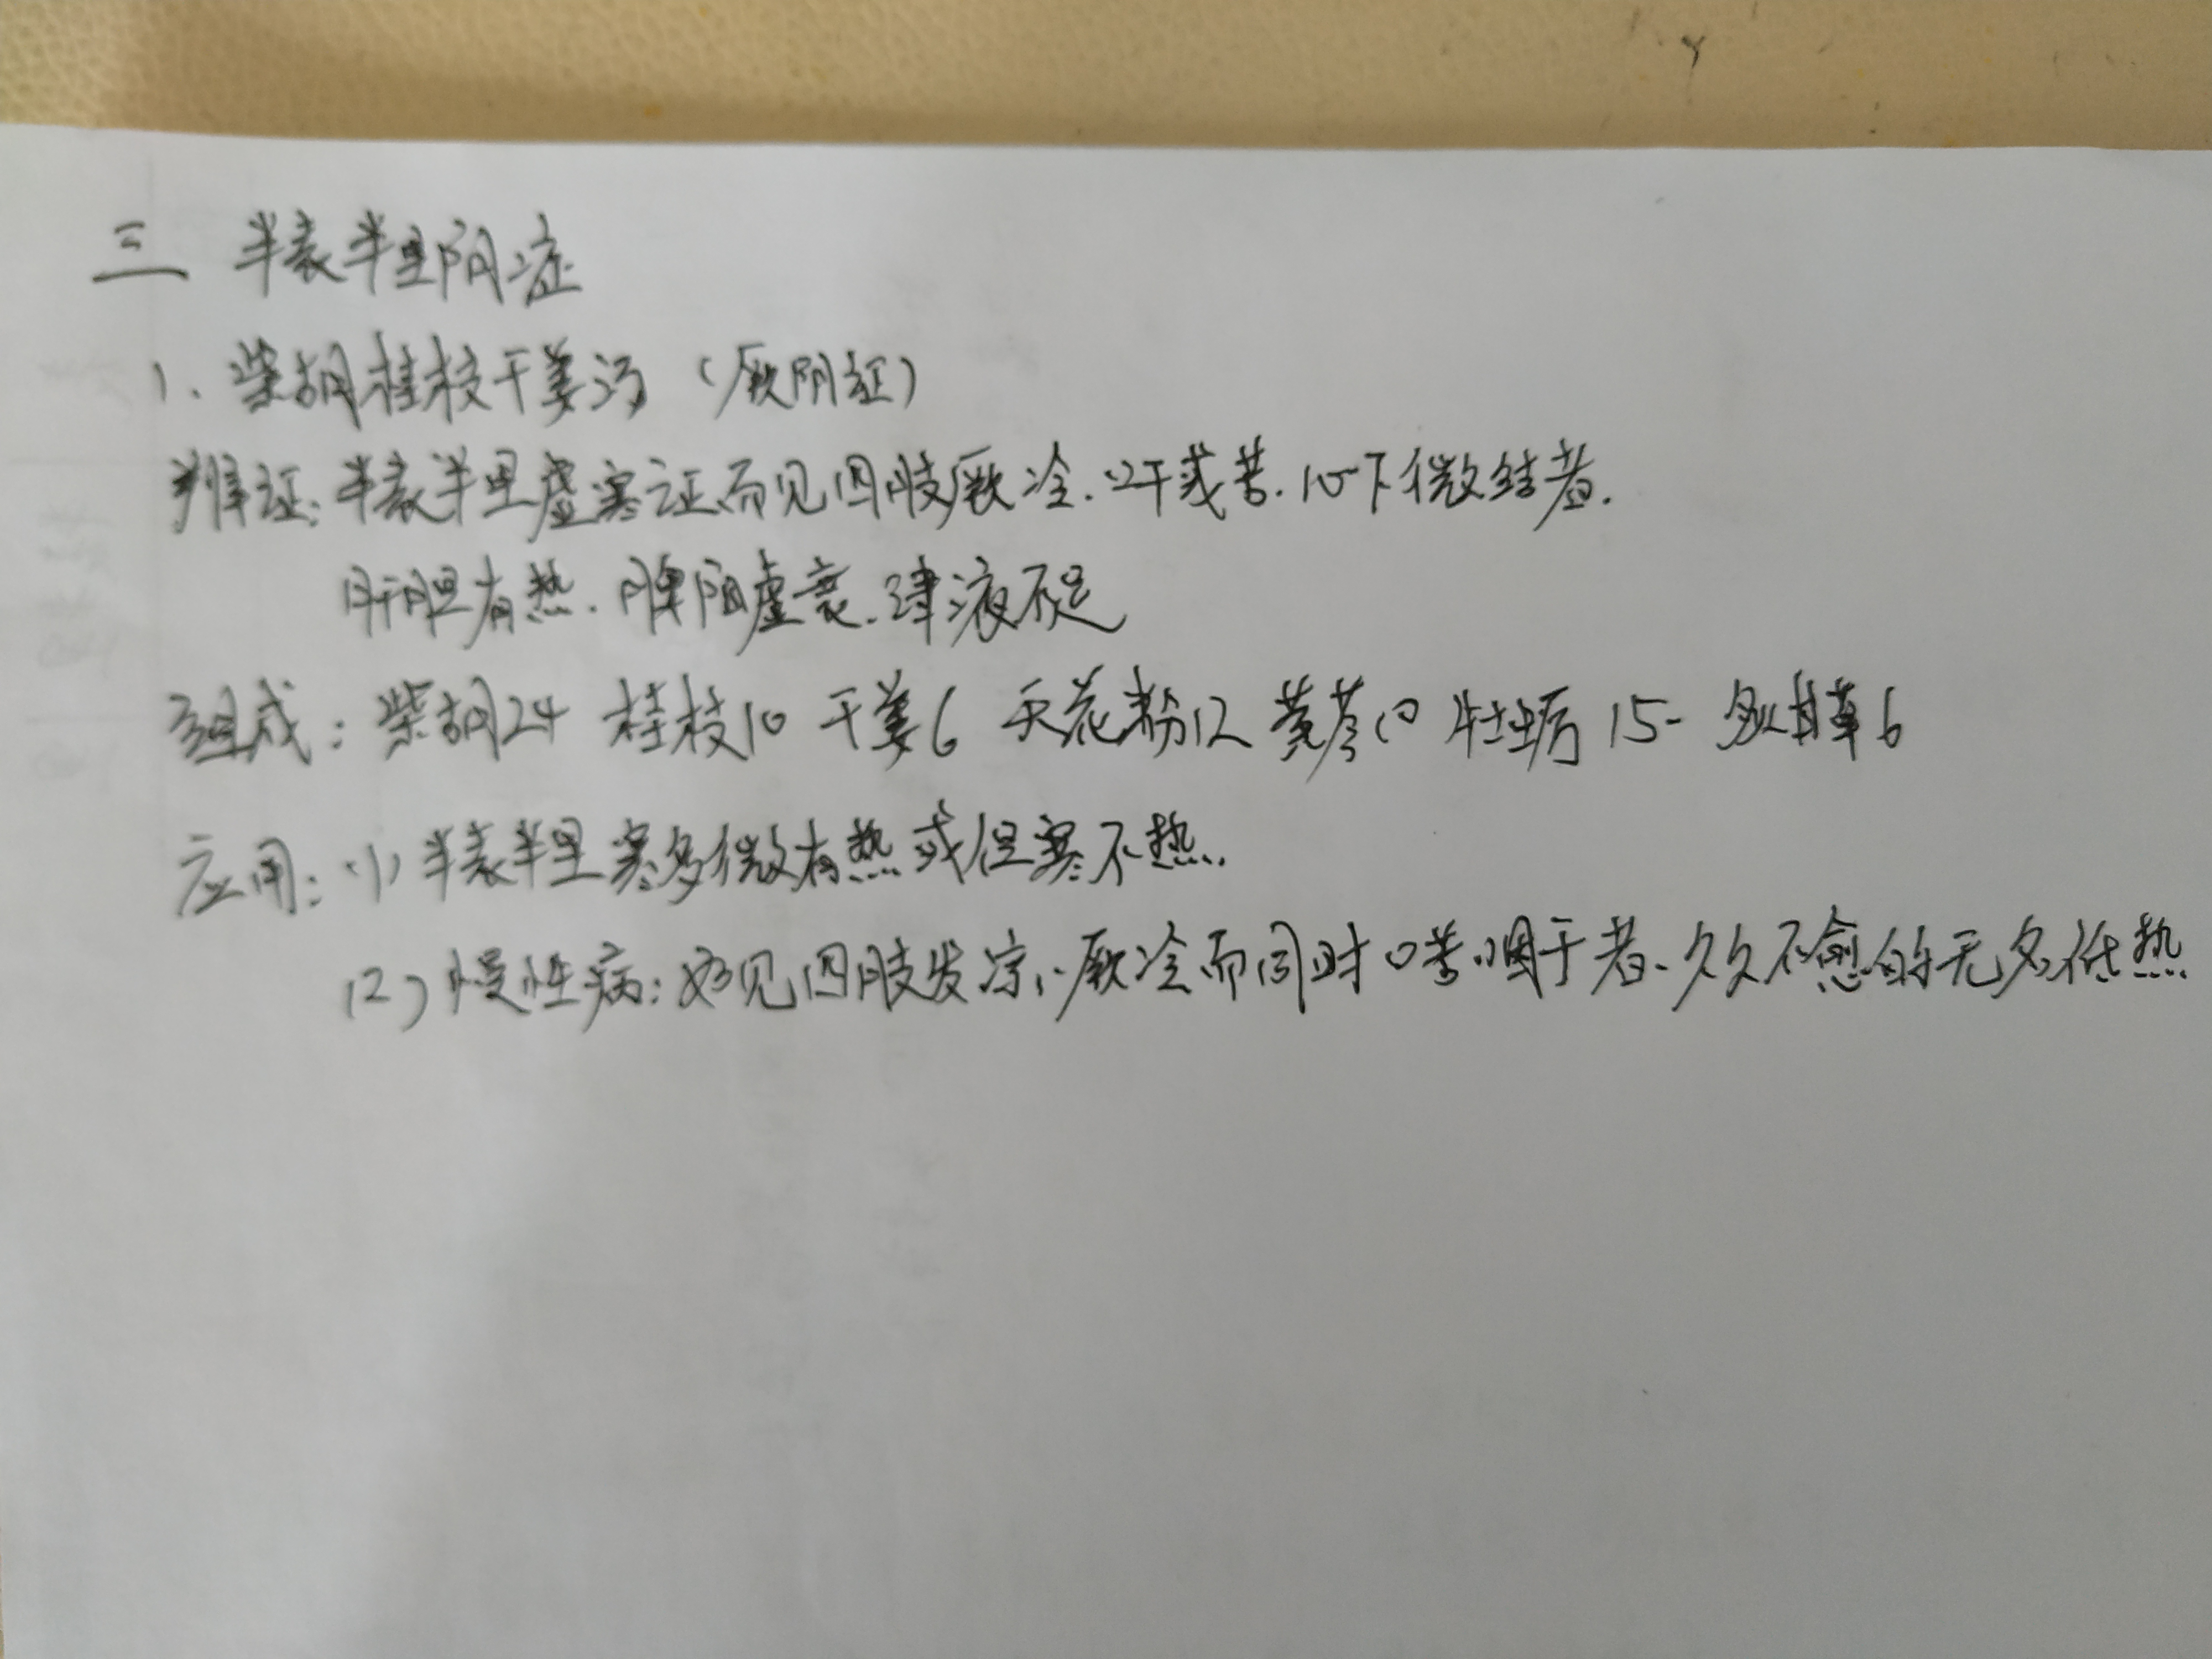 三 半表半里阴症
1. 柴胡桂枝干姜汤（厥阴证）
辩证: 半表半里虚寒证而见四肢厥冷.口干或苦.心下微结者.
肝胆有热.脾阳虚衰.津液不足
组成: 柴胡24 桂枝10 干姜6 天花粉12 黄芩10 牡蛎15 炙甘草6
应用: (1) 半表半里寒多微有热或但寒不热.
(2) 慢性病: 如见四肢发凉、厥冷而同时口苦咽干者.久久不愈的无名低热